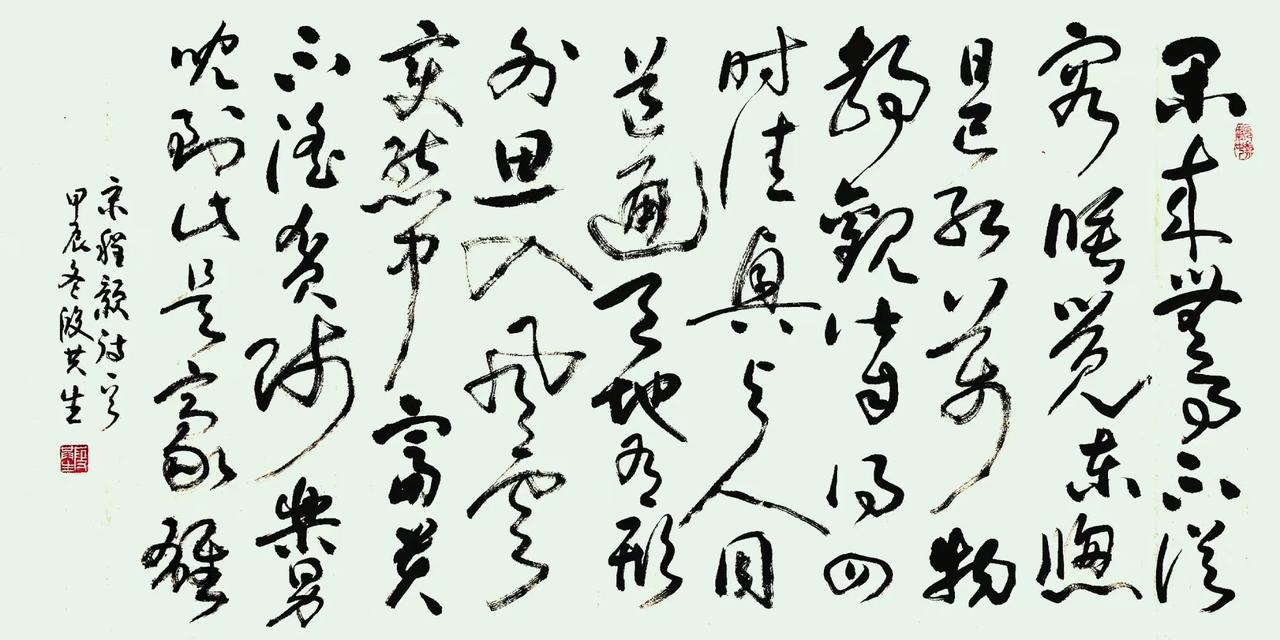 闲来無事不從
容睡觉东窗
日已红万物
静觀皆自得四
时佳興与人同
道通天地有形
外思入风雲
变態中富貴
不淫贫贱樂男
兒到此是豪雄
宋程颢诗一首
甲辰冬段共生